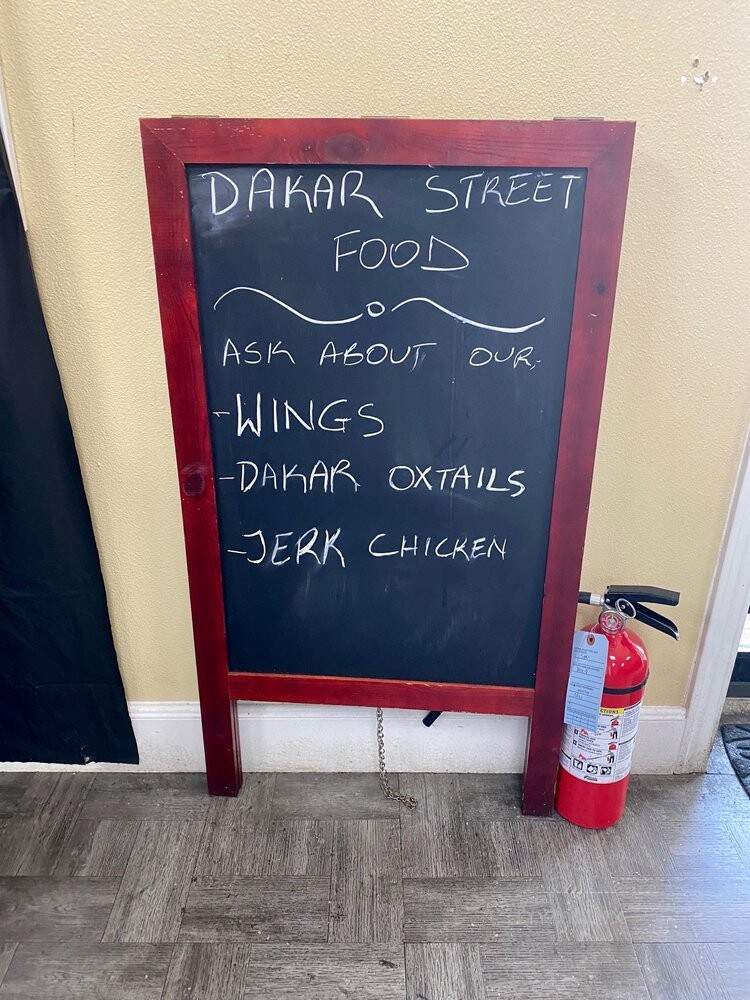 DAKAR STREET
FOOD
ASK ABOUT OUR
-WINGS
-DAKAR OXTAILS
-JERK CHICKEN